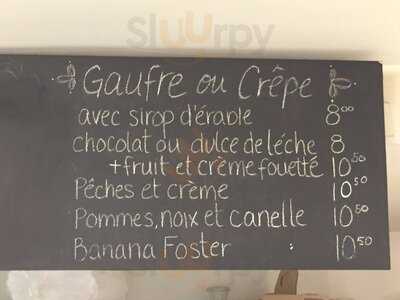 Sluurpy
Gaufre ou Crêpe
avec sirop d'érable 8⁰⁰
chocolat ou dulce de léche 8
+fruit et crème fouetté 10⁵⁰
Pêches et crème 10⁵⁰
Pommes, noix et canelle 10⁵⁰
Banana Foster : 10⁵⁰